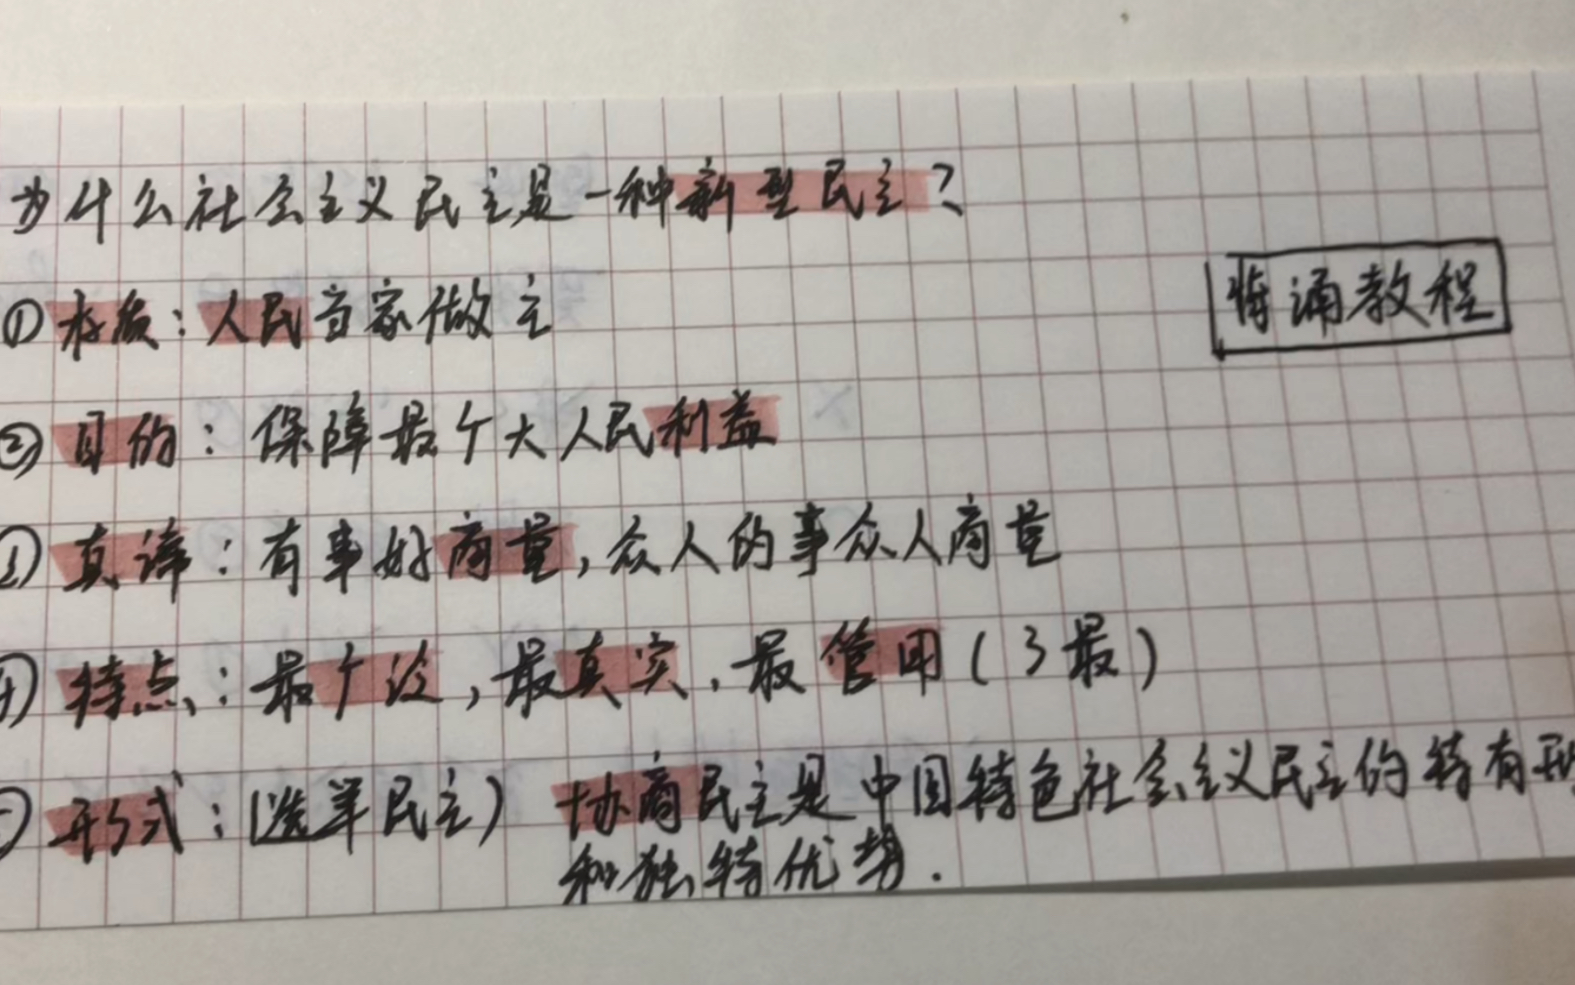 为什么社会主义民主是一种新型民主?
①本质:人民当家做主
背诵教程
②目的:保障最广大人民利益
③真谛:有事好商量,众人的事众人商量
④特点:最广泛,最真实,最管用(3最)
⑤形式:(选举民主) 协商民主是中国特色社会主义民主的特有形
和独特优势.